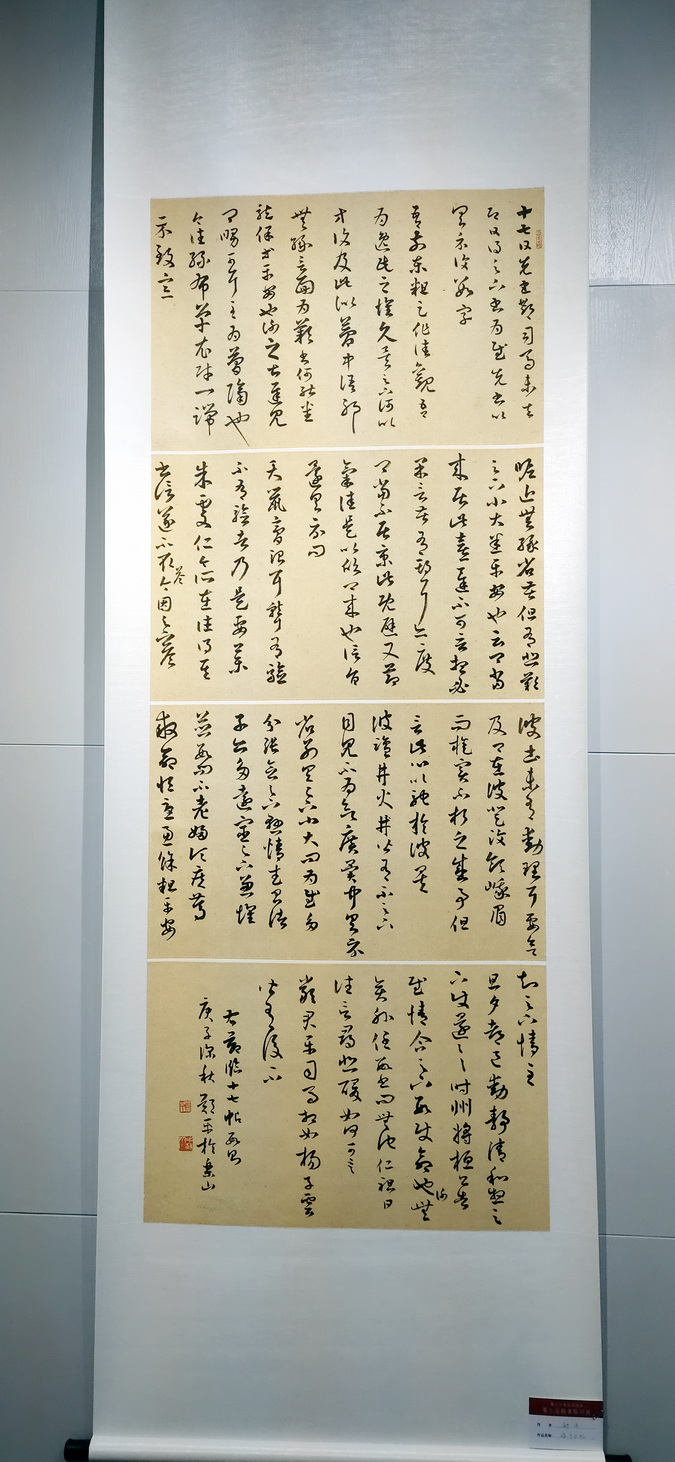 十七日先書郗司馬未去
即日得足下書為慰先書以
具示復數字
吾前東粗足作佳觀吾
為逸民之懷久矣足下何以
方復及此似夢中語耶
無緣言面為歎書何能悉
龍保等平安也謝之甚遲見
卿舅可耳至為簡隔也
今往絲布單衣財一端
示致意
瞻近無緣省苦但有悲歎
足下小大悉平安也云卿當
來居此喜遲不可言想必
果言苦有期耳亦度
卿當不居京此既避又節
氣佳是以欣卿來也此信旨
還具示問
天鼠膏治耳聾有驗
不有驗者乃是要藥
朱處仁今所在往得其
書信遂不取答今因足下答
彼土未有動理耳要欲
及卿在彼登汶領峨眉
而旋實不朽之盛事但
言此心以馳於彼矣
彼鹽井火井皆有不足下
目見不為欲廣異聞具示
省別具足下小大問為慰多
分張念足下懸情武昌諸
子亦多遠宦足下兼懷
並數問不老婦頃疾篤
救命恒憂慮餘粗平安
知足下情至
旦夕都邑動靜清和想足
下使還一一時州將桓公告
慰情企足下數使命也謝無
奕外任數書問無他仁祖日
往言尋悲酸如何可言
嚴君平司馬相如楊子雲
皆有後不
右節臨十七帖數則
庚子深秋於山